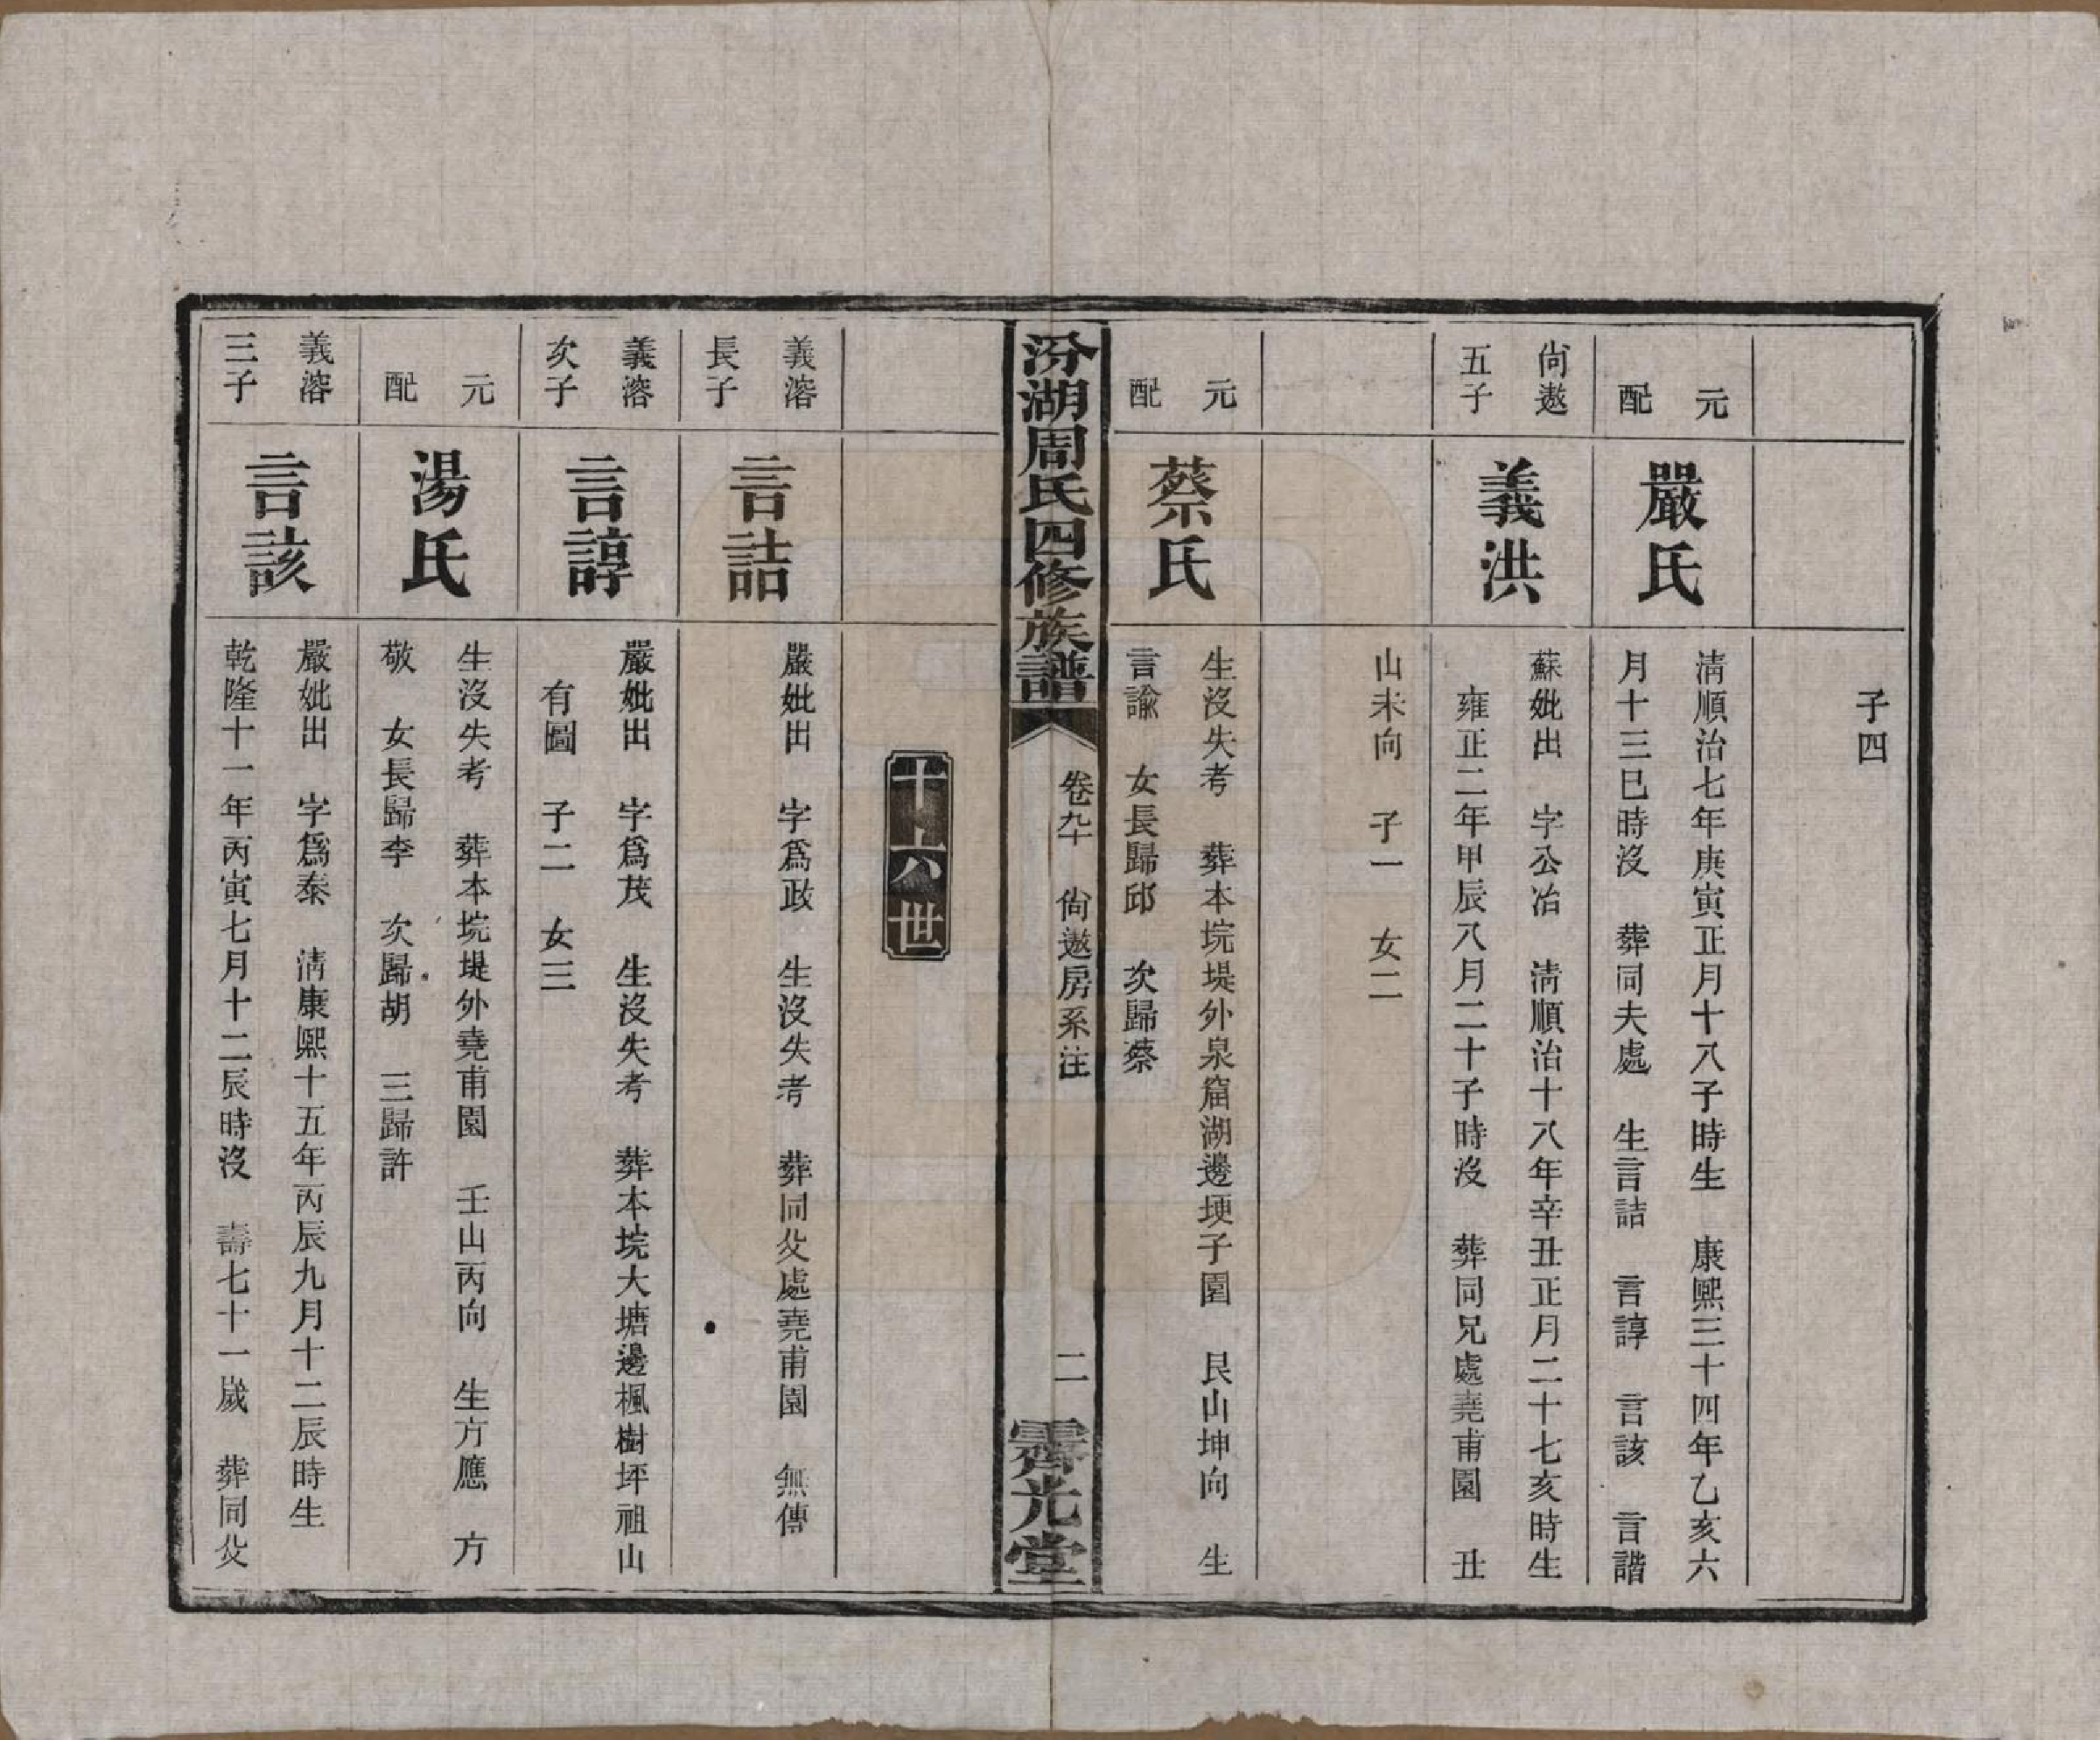 子四
元
配
嚴氏
淸順治七年庚寅正月十八子時生　康熙三十四年乙亥六
月十三巳時沒　葬同夫處　生言詰　言諄　言該　言諧
尙遨
五子
義洪
蘇妣出　字公冶　淸順治十八年辛丑正月二十七亥時生
雍正二年甲辰八月二十子時沒　葬同兄處堯甫園　丑
山未向　子一　女二
元
配
蔡氏
生沒失考　葬本垸堤外泉窟湖邊埂子園　艮山坤向　生
言諭　女長歸邱　次歸蔡
汾湖周氏四修族譜
卷九十　尙遨房系注
二
霽光堂
十八世
義溶
長子
言詰
嚴妣出　字爲政　生沒失考　葬同父處堯甫園　無傳
義溶
次子
言諄
嚴妣出　字爲茂　生沒失考　葬本垸大塘邊楓樹坪祖山
有圖　子二　女三
元
配
湯氏
生沒失考　葬本垸堤外堯甫園　壬山丙向　生方應　方
敬　女長歸李　次歸胡　三歸許
義溶
三子
言該
嚴妣出　字爲泰　淸康熙十五年丙辰九月十二辰時生
乾隆十一年丙寅七月十二辰時沒　壽七十一歲　葬同父